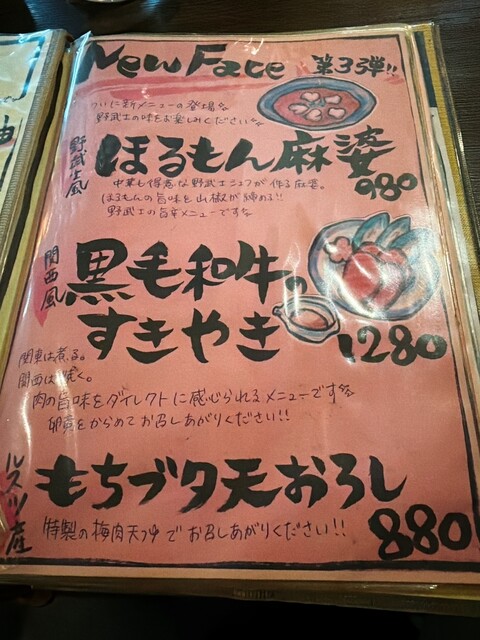 New Face 第3弾!!
ついに新メニューの登場☆
野武士の味をお楽しみください☆
野武士風
ほるもん麻婆
980
中華も得意な野武士シェフが作る麻婆。
ほるもんの旨味を山椒が締める!!
野武士の旨辛メニューです☆
関西風
黒毛和牛の
すきやき
1280
関東は煮る。
関西は焼く。
肉の旨味をダイレクトに感じられるメニューです☆
卵黄をからめてお召しあがりください!!
ルスツ産
もちブタ天おろし
特製の梅肉天つゆでお召しあがりください!!
880